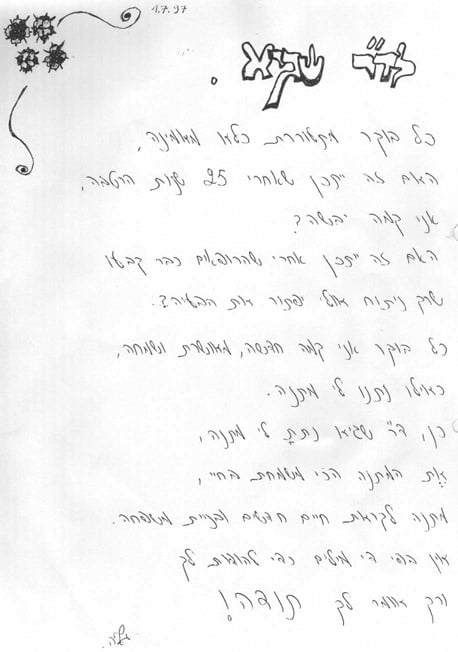 1.7.97
לד"ר שגיא.
כל בוקר מתעוררת כלא מאמינה,
האם זה ייתכן שאחרי 25 שנות הרטבה,
אני קמה יבשה?
האם זה ייתכן אחרי שהרופאים כבר קבעו
שרק ניתוח אולי יפתור את הבעיה?.
כל בוקר אני קמה חדשה, מאושרת ושמחה,
כאילו נתנו לי מתנה.
כן, ד"ר שגיא נתת לי מתנה,
את המתנה הכי משמחת בחיי,
מתנה לקראת חיים חדשים ובניית משפחה.
אין בפי די מילים כדי להודות לך
ורק אומר לך תודה!